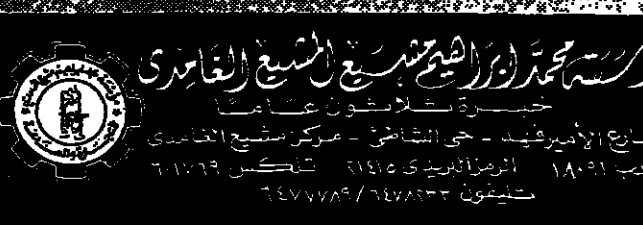 محمد إبراهيم مشبع المشيع الغامدى
خبرة ثلاثون عاما
الأمير فهد - حى الشاطئ - مركز مشيع الغامدى
١٨٠٩١ الرمز البريدى ٢١٤١٥ تلكس ٦٠١٧٦٩
تليفون ٦٤٧٨٢٣٣ / ٦٤٧٧٧٨٩